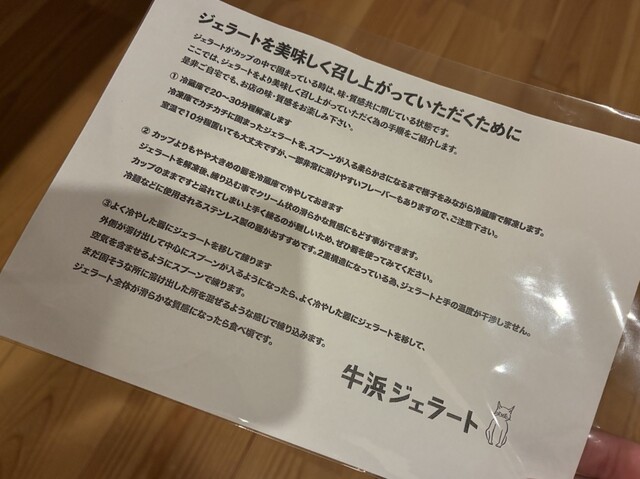 ジェラートを美味しく召し上がっていただくために
ジェラートがカップの中で固まっている時は、味・質感共に閉じている状態です。
ここでは、ジェラートをより美味しく召し上がっていただく為の手順をご紹介します。
是非ご自宅でも、お店の味・質感をお楽しみ下さい。
① 冷蔵庫で20〜30分程解凍します
冷凍庫でカチカチに固まったジェラートを、スプーンが入る柔らかさになるまで様子をみながら冷蔵庫で解凍します。
室温で10分程置いても大丈夫ですが、一部非常に溶けやすいフレーバーもありますので、ご注意下さい。
② カップよりもやや大きめの器を冷蔵庫で冷やしておきます
ジェラートを解凍後、練り込む事でクリーム状の滑らかな質感にもどす事ができます。
カップのままですと溢れてしまい上手く練るのが難しいため、ぜひ器を使ってみてください。
冷麺などに使用されるステンレス製の器がおすすめです。2重構造になっている為、ジェラートと手の温度が干渉しません。
③よく冷やした器にジェラートを移して練ります
外側が溶け出して中心にスプーンが入るようになったら、よく冷やした器にジェラートを移して、
空気を含ませるようにスプーンで練ります。
まだ固そうな所に溶け出した所を混ぜるような感じで練り込みます。
ジェラート全体が滑らかな質感になったら食べ頃です。
牛浜ジェラート